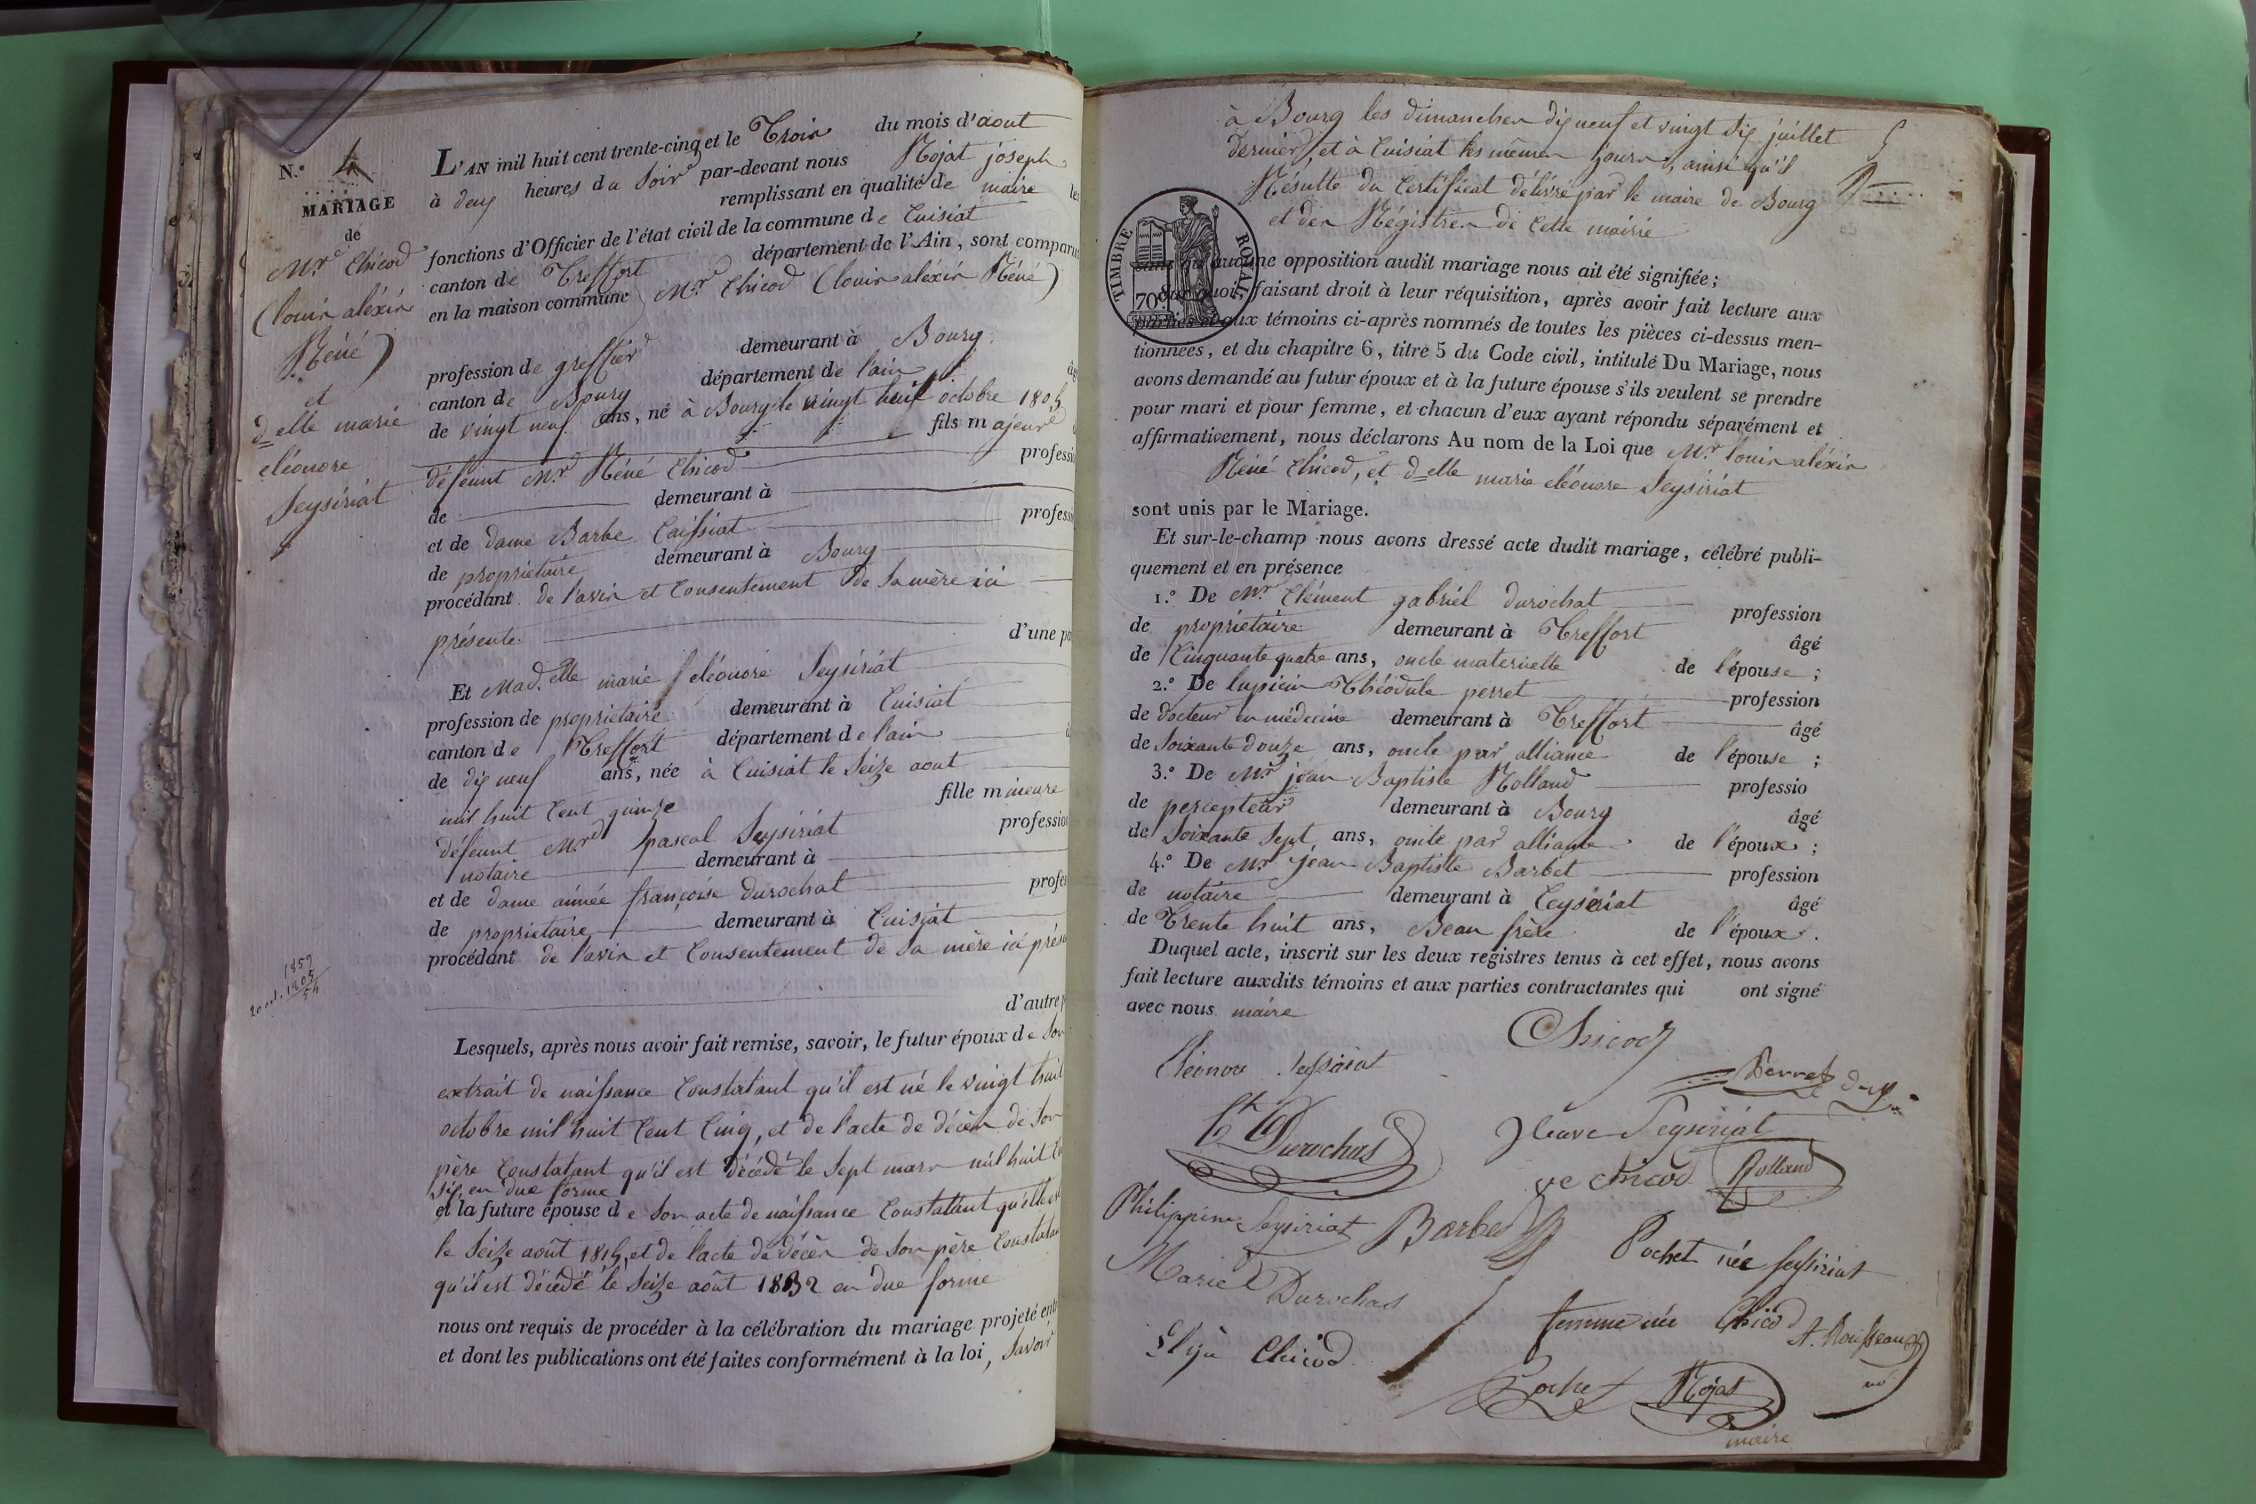 N.° 4
MARIAGE
de
Mr. Chicod
(louis aléxis
Réné)
et
delle marie
eléonore
Seysiriat
1859
20 oct. 1805
54
L'AN mil huit cent trente-cinq et le Trois du mois d'aout
à deux heures du Soir par-devant nous Rojat joseph
remplissant en qualité de maire les
fonctions d'Officier de l'état civil de la commune de Cuisiat
canton de Treffort département de l'Ain, sont comparus
en la maison commune Mr. Chicod (louis aléxis Réné)
profession de greffier demeurant à Bourg
canton de Bourg département de l'ain âg
de vingt neuf ans, né à Bourg le vingt huit octobre 1805
fils majeur d
défeunt Mr. Réné Chicod professi
de demeurant à
et de dame Barbe Caissiat profess
de propriétaire demeurant à Bourg
procédant de l'avis et Consentement de Sa mère ici
présente. d'une pa
Et Mad.elle marie eléonore Seysiriat
profession de propriétaire demeurant à Cuisiat
canton de Treffort département de l'ain
de dix neuf ans, née à Cuisiat le Seize aout
mil huit Cent quinze fille mineure
défeunt Mr. pascal Seysiriat profession
notaire demeurant à
et de dame aimée françoise durochat profes
de propriétaire demeurant à Cuisiat
procédant de l'avis et Consentement de Sa mère ici prése
d'autre p
Lesquels, après nous avoir fait remise, savoir, le futur époux de Son
extrait de naissance Constatant qu'il est né le vingt huit
octobre mil huit Cent Cinq, et de l'acte de décès de Son
père Constatant qu'il est décédé le Sept mars mil huit C
Six en due forme
et la future épouse de Son acte de naissance Constatant qu'elle est
le Seize août 1815, et de l'acte de décès de Son père Constatan
qu'il est décédé le Seize août 1832 en due forme
nous ont requis de procéder à la célébration du mariage projeté entr
et dont les publications ont été faites conformément à la loi, Savoir
à Bourg les dimanches dix neuf et vingt Six juillet
dernier, et à Cuisiat les mêmes jours, ainsi qu'il
Résulte du Certificat délivré par le maire de Bourg
et des Régistres de Cette mairie
TIMBRE ROYAL
70c
sans qu'aucune opposition audit mariage nous ait été signifiée;
Sur quoi, faisant droit à leur réquisition, après avoir fait lecture aux
parties et aux témoins ci-après nommés de toutes les pièces ci-dessus men-
tionnées, et du chapitre 6, titre 5 du Code civil, intitulé Du Mariage, nous
avons demandé au futur époux et à la future épouse s'ils veulent se prendre
pour mari et pour femme, et chacun d'eux ayant répondu séparément et
affirmativement, nous déclarons Au nom de la Loi que Mr. louis aléxis
Réné Chicod, et delle marie eléonore Seysiriat
sont unis par le Mariage.
Et sur-le-champ nous avons dressé acte dudit mariage, célébré publi-
quement et en présence
1.° De Mr. Clément gabriel durochat profession
de propriétaire demeurant à Treffort âgé
de Cinquante quatre ans, oncle maternelle de l'épouse;
2.° De lupicin Théodule perret profession
de docteur en médecine demeurant à Treffort âgé
de Soixante douze ans, oncle par alliance de l'épouse;
3.° De Mr. jean Baptiste Rolland professio
de percepteur demeurant à Bourg âgé
de Soixante Sept ans, oncle par alliance de l'époux;
4.° De Mr. jean Baptiste Barbet profession
de notaire demeurant à Ceyseriat âgé
de Trente huit ans, Beau frère de l'époux.
Duquel acte, inscrit sur les deux registres tenus à cet effet, nous avons
fait lecture auxdits témoins et aux parties contractantes qui ont signé
avec nous maire
Chicod
Eléonore Seysiriat
Perret
Ct Durochat
Veuve Seysiriat
ve Chicod Rolland
Philippine Seysiriat Barbet
Pochet née Seysiriat
Marie Durochat
femme née Chicod
A. Rousseau
Chicod
Pochet Rojat
maire